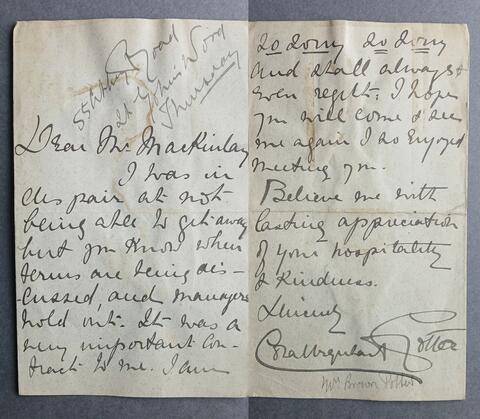 55 Abbey Road
St John's Wood
Thursday
Dear Mr MacKinlay
I was in
despair at not
being able to get away
but you know when
terms are being dis-
cussed, and managers
hold out. It was a
very important con-
tract to me. I am
so sorry so sorry
and shall always &
ever regret. I hope
you will come & see
me again I so enjoyed
meeting you.
Believe me with
lasting appreciation
of your hospitality
& Kindness.
Sincerely
Cora Urquhart Potter
Mrs Brown Potter